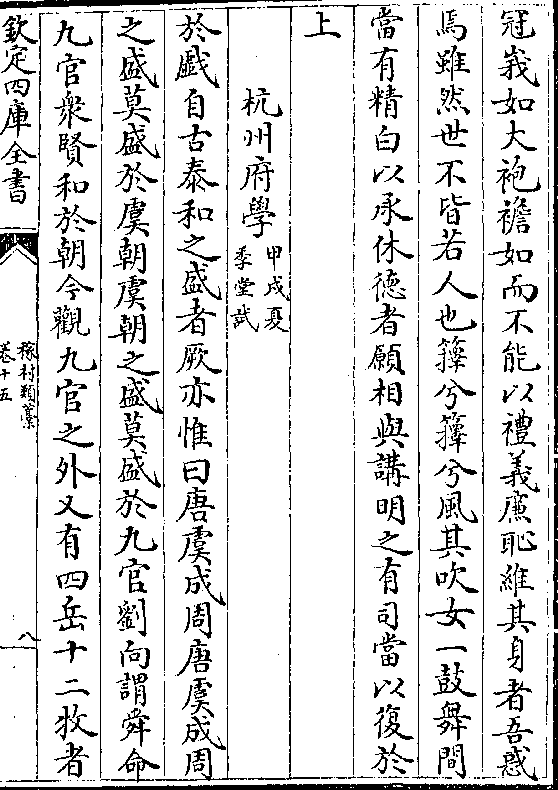 冠峩如大袍襜如而不能以禮義廉恥維其身者吾惑
焉雖然世不皆若人也籜兮籜兮風其吹女一鼓舞間
當有精白以承休德者願相與講明之有司當以復於
上
杭州府學
甲戌夏
季堂試
於戯自古泰和之盛者厥亦惟曰唐虞成周唐虞成周
之盛莫盛於虞朝虞朝之盛莫盛於九官劉向謂舜命
九官衆賢和於朝今觀九官之外又有四岳十二牧者
欽定四庫全書
稼村類藁
卷十五
八